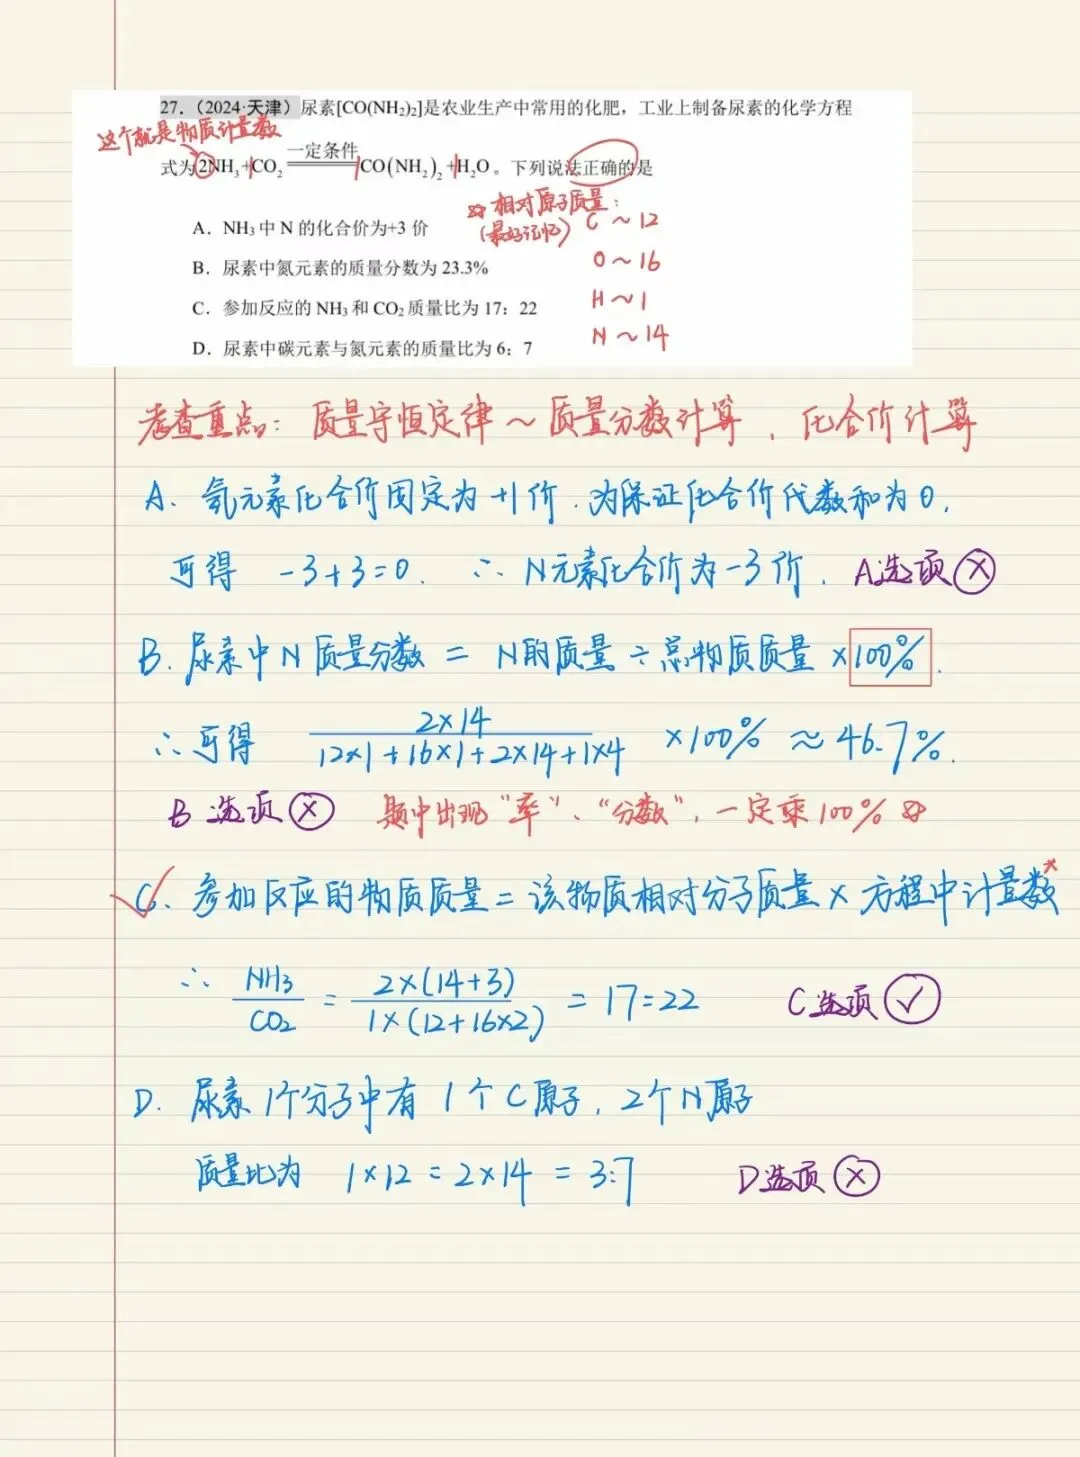 27.（2024·天津）尿素[CO(NH₂)₂]是农业生产中常用的化肥，工业上制备尿素的化学方程
这个就是物质计量数
式为2NH₃+1CO₂ 一定条件 1CO(NH₂)₂+1H₂O。下列说法正确的是
☆ 相对原子质量：
(最好记忆)
C ~ 12
O ~ 16
H ~ 1
N ~ 14
A．NH₃中 N 的化合价为+3 价
B．尿素中氮元素的质量分数为 23.3%
C．参加反应的 NH₃和 CO₂质量比为 17：22
D．尿素中碳元素与氮元素的质量比为 6：7
考查重点：质量守恒定律 ~ 质量分数计算，化合价计算
A. 氢元素化合价固定为 +1价．为保证化合价代数和为0，
可得 -3+3=0． ∴ N元素化合价为-3价． A选项 ⓧ
B. 尿素中N质量分数 = N的质量 ÷ 总物质质量 ×100%．
∴可得 2×14 / 12×1+16×1+2×14+1×4 ×100% ≈ 46.7%．
B选项 ⓧ 题中出现“率”、“分数”，一定乘100% ☆
✓ C. 参加反应的物质质量 = 该物质相对分子质量 × 方程中计量数*
∴ NH3 / CO2 = 2×(14+3) / 1×(12+16×2) = 17=22 C选项 ✓
D. 尿素1个分子中有1个C原子，2个N原子
质量比为 1×12=2×14 = 3:7 D选项 ⓧ